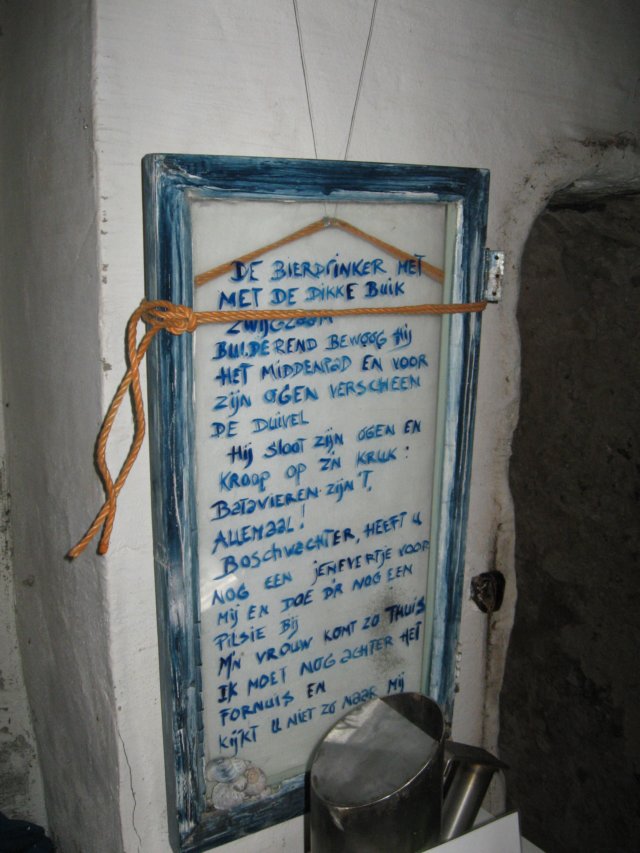 DE BIERDRINKER MET
MET DE DIKKE BUIK
ZWIJGZAAM
BULDEREND BEWOOG HIJ
HET MIDDENPAD EN VOOR
ZIJN OGEN VERSCHEEN
DE DUIVEL
HIJ SLOOT ZIJN OGEN EN
KROOP OP Z'N KRUK:
BATAVIEREN ZIJN 'T,
ALLEMAAL!
BOSCHWACHTER, HEEFT U
NOG EEN JENEVERTJE VOOR
MIJ EN DOE D'R NOG EEN
PILSIE BIJ
M'N VROUW KOMT ZO THUIS
IK MOET NOG ACHTER HET
FORNUIS EN
KIJKT U NIET ZO NAAR MIJ